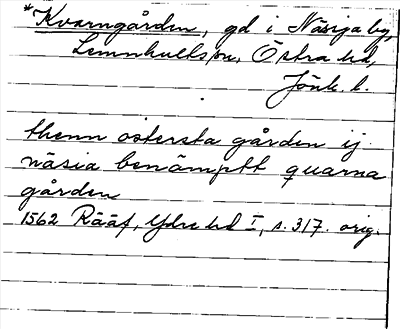 *Kvarngården, gd i Näsiga by,
Lemnhults sn, Östra hd,
Jönk. l.
thenn östersta gården ij
näsia benämptt quarna
gården
1562 Rääf, Ydre hd I, s. 317. orig.